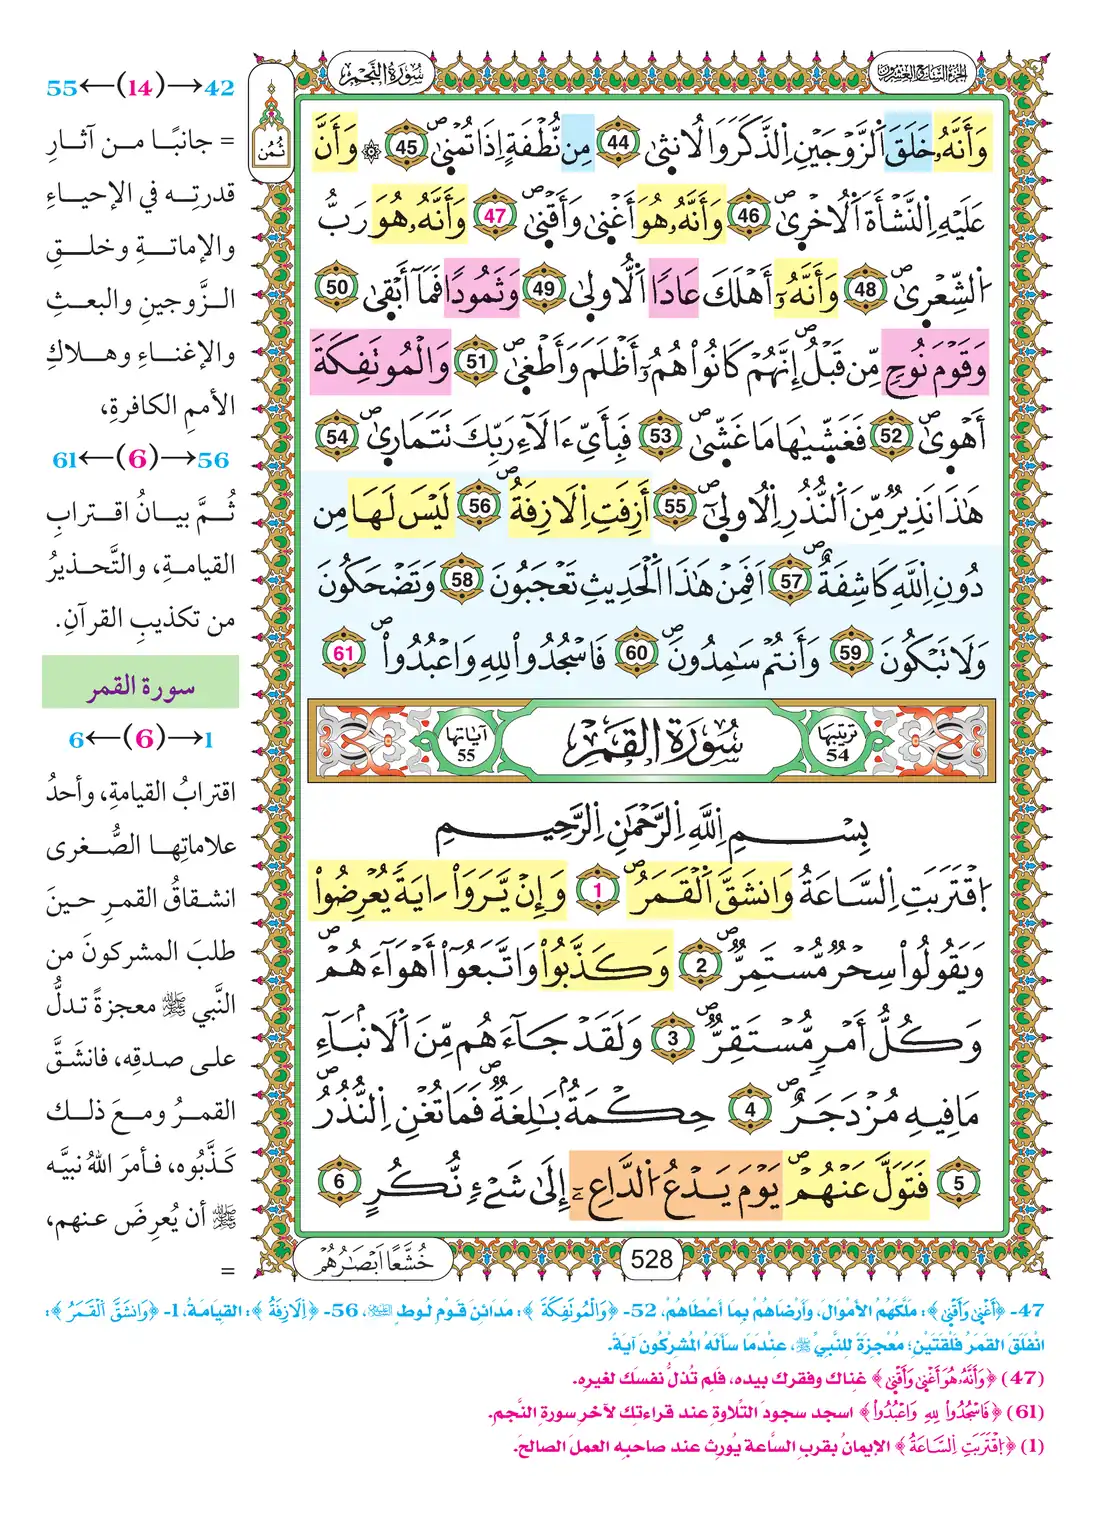 سُورَةُ النَّجْمِ
الجزء السابع والعشرون
ثُمُن
وَأَنَّهُۥ خَلَقَ اَلزَّوْجَيْنِ اِلذَّكَرَ وَالُانث۪ىٰ 44 مِن نُّطْفَةٍ اِذَا تُمْن۪ىٰ 45 ۞ وَأَنَّ
عَلَيْهِ اِلنَّشْأَةَ اَلُاخْر۪ىٰ 46 وَأَنَّهُۥ هُوَ أَغْن۪ىٰ وَأَقْن۪ىٰ 47 وَأَنَّهُۥ هُوَ رَبُّ
اُلشِّعْر۪ىٰ 48 وَأَنَّهُۥٓ أَهْلَكَ عَادًا اَلُّاول۪ىٰ 49 وَثَمُودًا فَمَآ أَبْق۪ىٰ 50
وَقَوْمَ نُوحٍ مِّن قَبْلُ إِنَّهُمْ كَانُواْ هُمُۥٓ أَظْلَمَ وَأَطْغ۪ىٰ 51 وَالْمُوتَفِكَةَ
أَهْو۪ىٰ 52 فَغَشّ۪يٰهَا مَا غَشّ۪ىٰ 53 فَبِأَيِّ ءَالَآءِ رَبِّكَ تَتَمَار۪ىٰ 54
هَٰذَا نَذِيرٌ مِّنَ اَلنُّذُرِ اِلُاول۪ىٰٓ 55 أَزِفَتِ اِلَازِفَةُ 56 لَيْسَ لَهَا مِن
دُونِ اِللَّهِ كَاشِفَةٌ 57 اَفَمِنْ هَٰذَا اَلْحَدِيثِ تَعْجَبُونَ 58 وَتَضْحَكُونَ
وَلَا تَبْكُونَ 59 وَأَنتُمْ سَٰمِدُونَ 60 فَاسْجُدُواْ لِلهِ وَاعْبُدُواْ 61
ترتيبها 54 سُورَةُ القَمَر آياتها 55
بِسْمِ اِللَّهِ اِلرَّحْمَٰنِ اِلرَّحِيمِ
اِقْتَرَبَتِ اِلسَّاعَةُ وَانشَقَّ اَلْقَمَرُ 1 وَإِنْ يَّرَوَاْ ايَةً يُعْرِضُواْ
وَيَقُولُواْ سِحْرٌ مُّسْتَمِرٌّ 2 وَكَذَّبُواْ وَاتَّبَعُوٓاْ أَهْوَآءَهُمْ
وَكُلُّ أَمْرٍ مُّسْتَقِرٌّ 3 وَلَقَدْ جَآءَهُم مِّنَ اَلَانۢبَآءِ
مَا فِيهِ مُزْدَجَرٌ 4 حِكْمَةٌۢ بَٰلِغَةٌ فَمَا تُغْنِ اِلنُّذُرُ
5 فَتَوَلَّ عَنْهُمْ يَوْمَ يَدْعُ اُلدَّاعِۦٓ إِلَىٰ شَےْءٍ نُّكُرٍ 6
528
خُشَّعًا اَبْصَٰرُهُمْ
42→(14)←55
= جانبًا من آثارِ
قدرتِه في الإحياءِ
والإماتةِ وخلقِ
الزَّوجينِ والبعثِ
والإغناءِ وهلاكِ
الأممِ الكافرةِ،
56→(6)←61
ثُمَّ بيانُ اقترابِ
القيامةِ، والتَّحذيرُ
من تكذيبِ القرآنِ.
سورة القمر
1→(6)←6
اقترابُ القيامةِ، وأحدُ
علاماتِها الصُّغرى
انشقاقُ القمرِ حينَ
طلبَ المشركونَ من
النَّبي ﷺ معجزةً تدلُّ
على صدقِه، فانشَقَّ
القمرُ ومعَ ذلك
كَذَّبُوه، فأمرَ اللهُ نبيَّه
ﷺ أن يُعرِضَ عنهم،
=
47- ﴿أَغْن۪ىٰ وَأَقْن۪ىٰ﴾: مَلَّكَهُمُ الأَمْوَالَ، وَأَرْضَاهُمْ بِمَا أَعْطَاهُمْ، 52- ﴿وَالْمُوتَفِكَةَ﴾: مَدَائِنَ قَوْمِ لُوطٍ ﵇، 56- ﴿اِلَازِفَةُ﴾: القِيَامَةُ، 1- ﴿وَانشَقَّ اَلْقَمَرُ﴾:
انْفَلَقَ القَمَرُ فَلْقَتَيْنِ؛ مُعْجِزَةً لِلنَّبِيِّ ﷺ، عِنْدَمَا سَأَلَهُ المُشْرِكُونَ آيَةً.
(47) ﴿وَأَنَّهُۥ هُوَ أَغْن۪ىٰ وَأَقْن۪ىٰ﴾ غِناك وفقرك بيده، فَلِم تُذلُّ نفسَك لغيرِه.
(61) ﴿فَاسْجُدُواْ لِلهِ وَاعْبُدُواْ﴾ اسجد سجودَ التِّلاوةِ عند قراءتِك لآخرِ سورةِ النَّجم.
(1) ﴿اِقْتَرَبَتِ اِلسَّاعَةُ﴾ الإيمانُ بقربِ السَّاعة يُورِث عند صاحبِه العملَ الصالحَ.